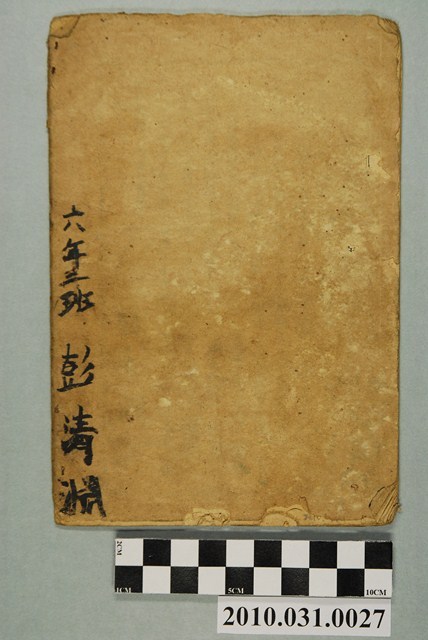 六年三班 彭清淵
2CM
1CM 5CM 10CM
2010.031.0027